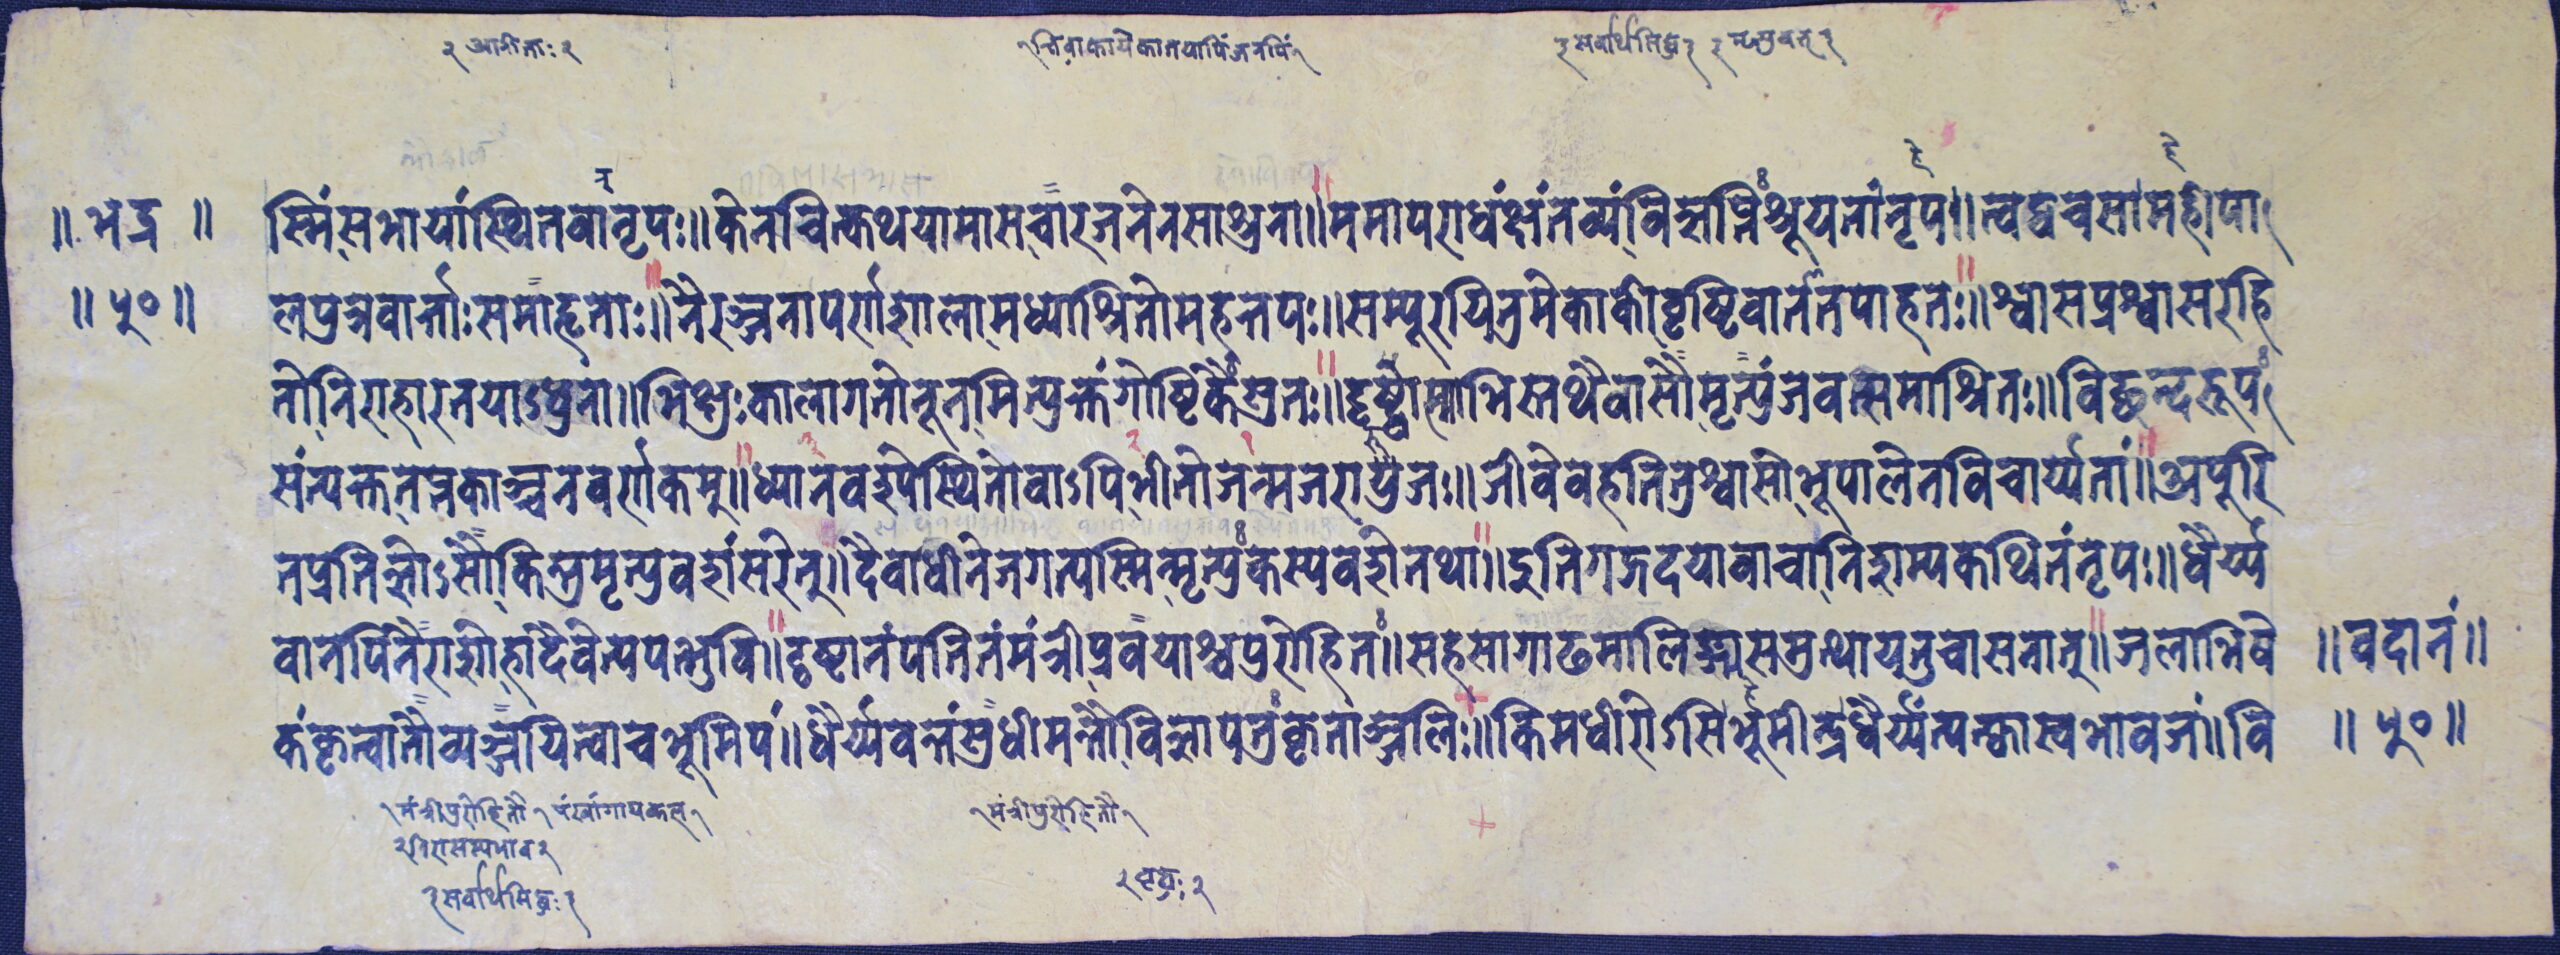 २ आनीताः २
२ सर्वार्थसिद्ध २ २ मृत्युवत् २
॥ भद्र ॥ स्मिं सभायां स्थितवा नृपः॥ केनचित्कथयामास चारजनेन साश्रुना॥ ममापराधं क्षंतव्यं विज्ञप्तिं श्रूयतां नृप॥ त्वद्वचसा महीपा
॥ ५० ॥ लपुत्रवार्त्ताः समाहृताः॥ नैरञ्जनापर्णशालामध्याश्रितो महत्तपः॥ सम्पूरयितुमेकाकी वृष्टिवातेन पाहतः॥ श्वासप्रश्वासरहि
तो निराहारतयाऽधुना॥ भिक्षुः कालागतो नूनमित्युक्तं गोष्टिकैः श्रुतः॥ दृष्ट्वास्माभिस्तथैवासौ मृत्युंजवत्समाश्रितः॥ विच्छन्दरूपः
संत्यक्तनप्तकाञ्चनवर्णकम्॥ ध्यानवशे स्थितो वाऽपि भीतो जन्मजरायुजः॥ जीवे वहति नु श्वासो भूपालेन विचार्य्यतां॥ अपूरि
तप्रतिज्ञोऽसौ किमु मृत्युवशं सरेत्॥ दैवाधीने जगत्यस्मिन्मृत्युः कस्य वशे तथा॥ इति गद्गदया वाचा निशम्य कथितं नृपः॥ धैर्य्य
वानपि नैराशी हा दैवेत्यपतद्भुवि॥ दृष्टा तं पतितं मंत्री प्रवयाश्च पुरोहितः॥ सहसा गाढमालिङ्ग्य समुत्थाय तु चासनात्॥ जलाभिषे ॥ वदानं ॥
कं कृत्वा तौ व्यञ्जयित्वा च भूमिपं॥ धैर्य्यवन्तं सुधीमन्तौ विज्ञापतुः कृताञ्जलिः॥ किमधीरोऽसि भूमीन्द्र धैर्य्यं त्यक्त्वा स्वभावजं॥ वि ॥ ५० ॥
१ मंत्रीपुरोहितौ १
१ मंत्रीपुरोहितौ १
२ सर्वार्थसिद्धः २
२ वृद्धः २